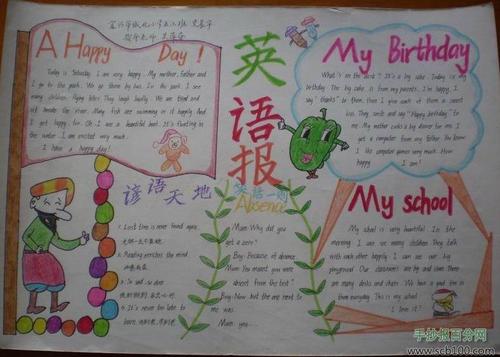 A Happy Day!
Today is Saturday. I am very happy. My mother, father and
I go to the park. We go there by bus. In the park I see
many children flying kites. They laugh loudly. We are tired and
sit beside the river. Many fish are swimming in it happily. And
I get happy, too. Oh. I see a beautiful boat. It's floating in
the water. I am excited very much.
I have a happy day!
英
语
报
My Birthday
What's on the desk? It's a big cake. Today is my
birthday. The big cake is from my parents. I'm happy. I
say "thanks" to them. then I give each of them a sweet
kiss. They smile and say "Happy birthday" to
me. My mother cooks a big dinner for me. I
get a computer from my father. You know
I like computer games very much. How happy
I am!
谚语天地
1. Lost time is never found again.
2. Reading enriches the mind.
3. So said so done
4. It's never too late to
笑话一则
Absence
Mum: Why did you
get a zero?
Boy: Because of absence.
Mum: You meant you were
absent from the test?
Boy: Not. And the one next to me
was.
Mum: you...
My school
My school is very beautiful. In the
morning, I can see many children. They talk
with each other happily. I can see our big
playground. Our classrooms are big and clean. There
are many desks and chairs. We have a good time in
them everyday. This is my school.
I love it!
手抄报百分网
www.scb100.com